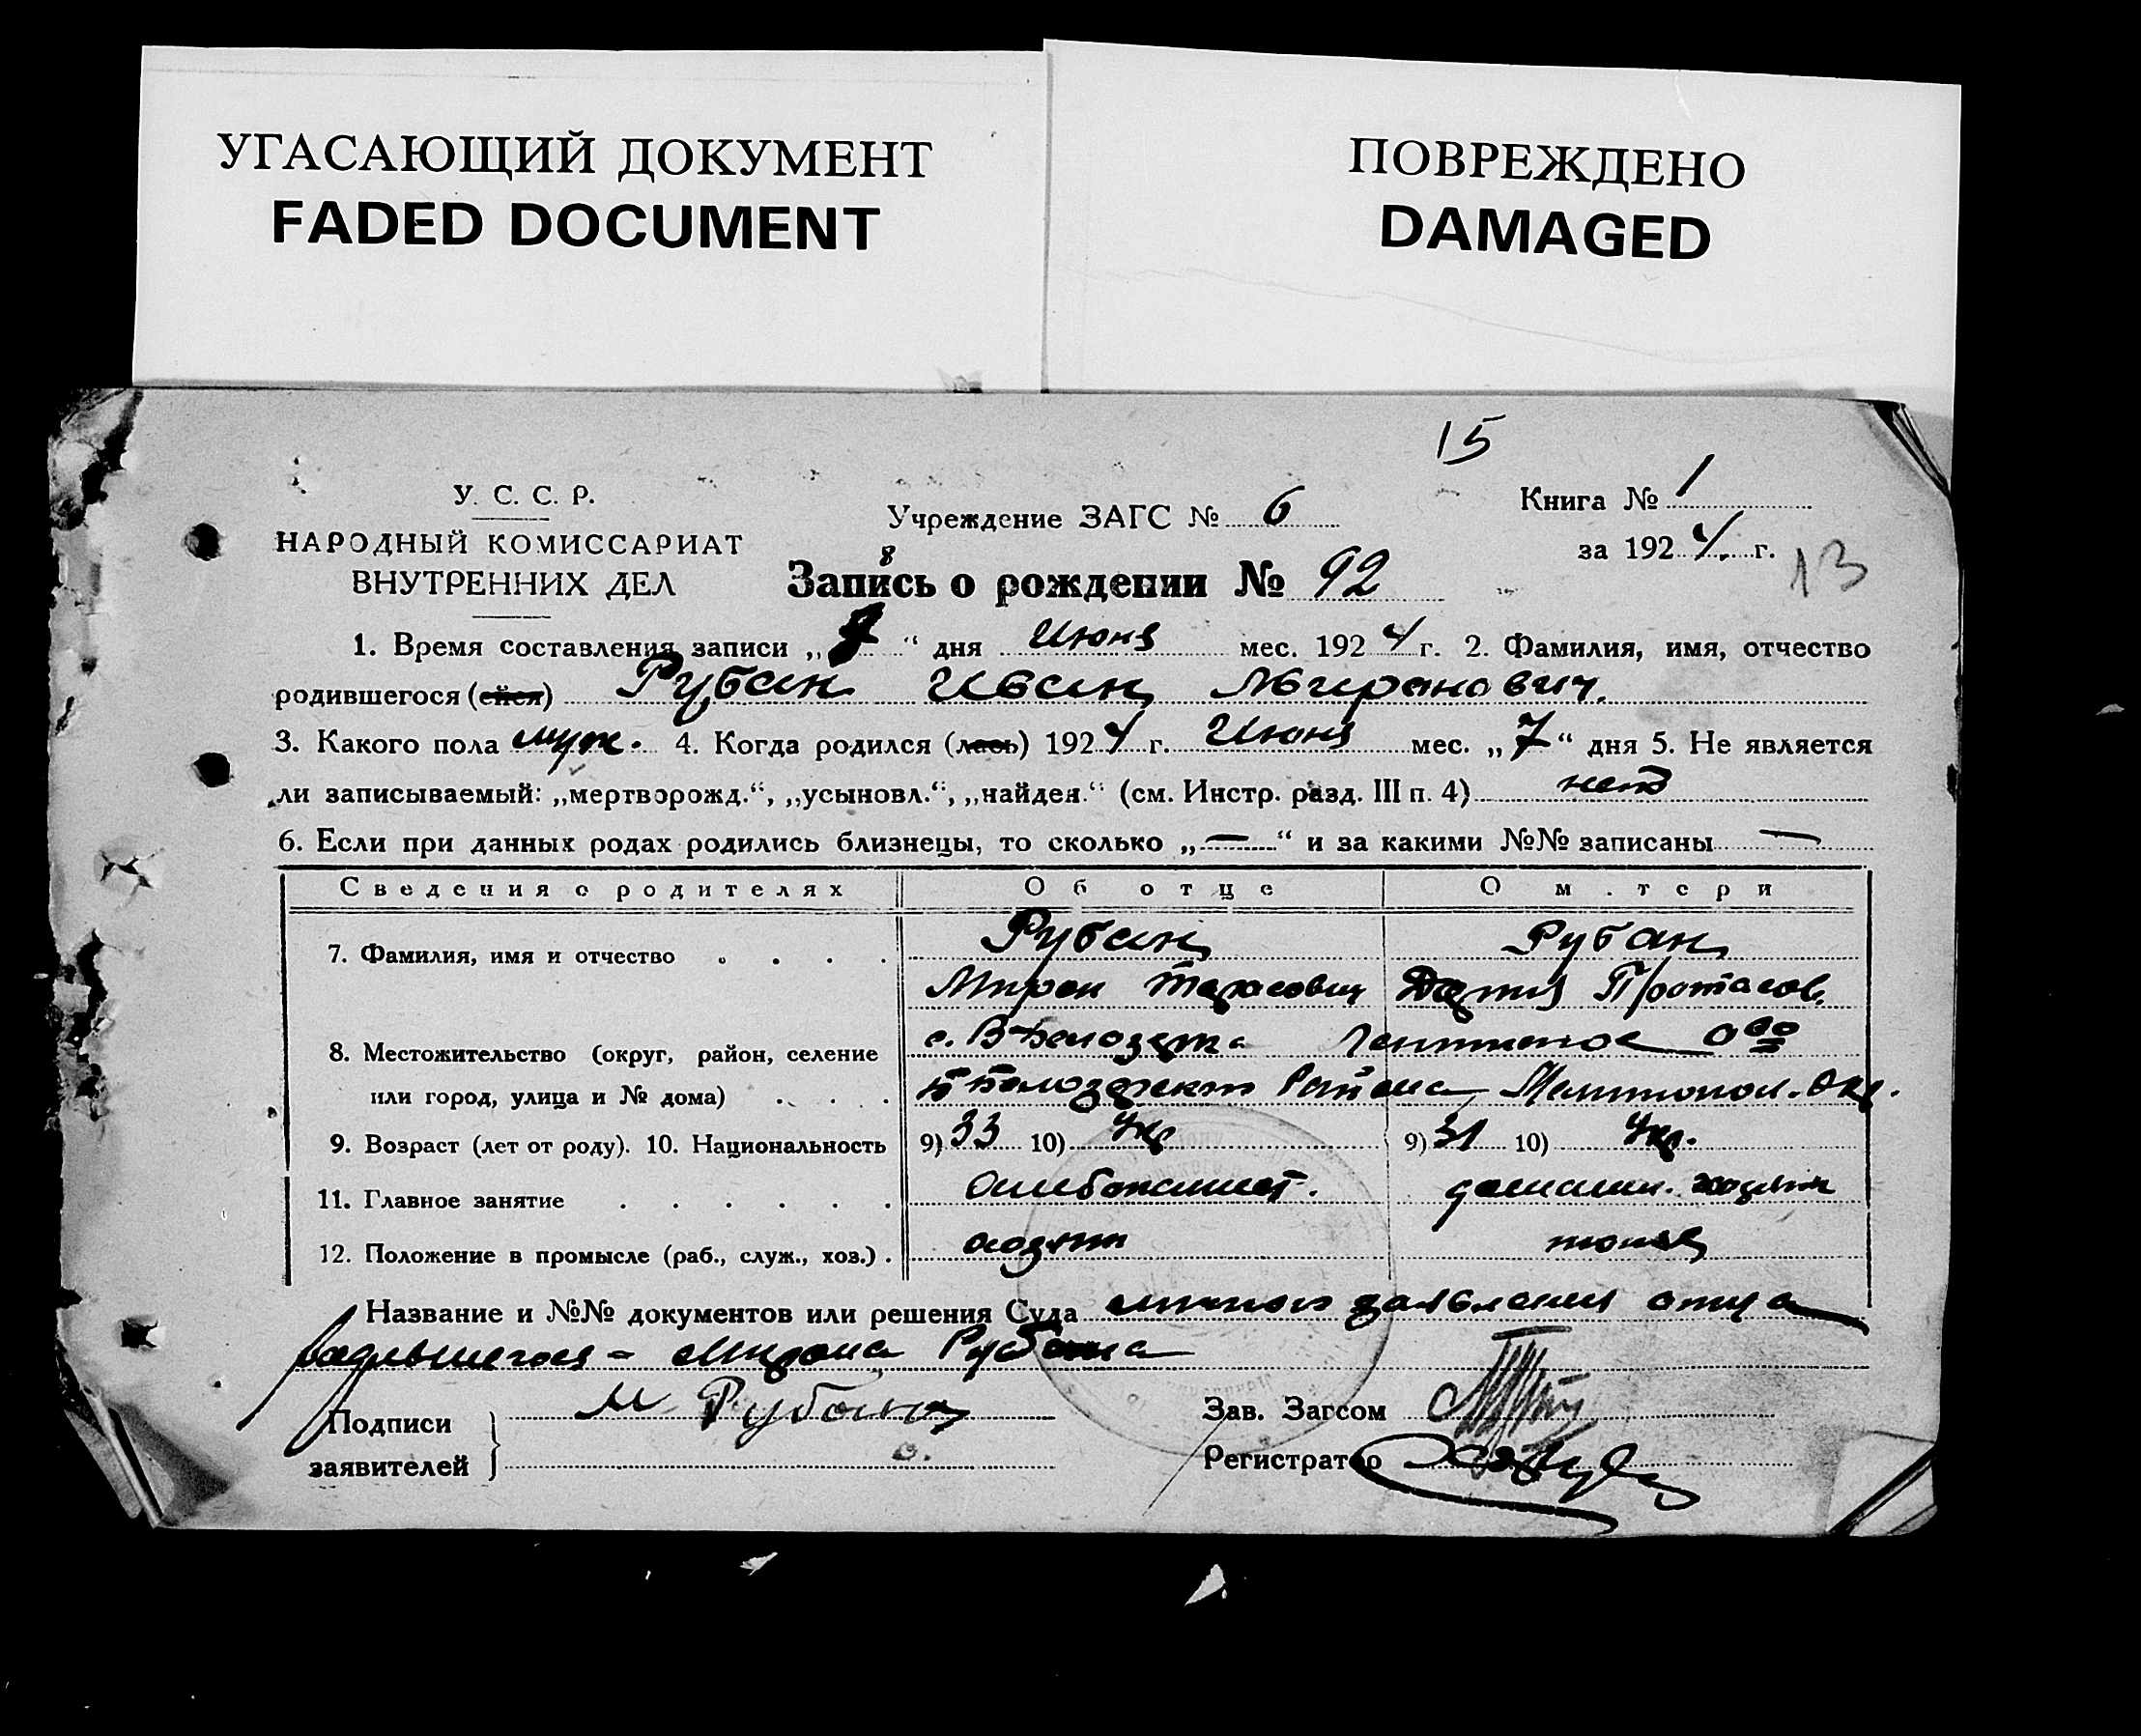 УГАСАЮЩИЙ ДОКУМЕНТ
FADED DOCUMENT
ПОВРЕЖДЕНО
DAMAGED
15
У. С. С. Р.
НАРОДНЫЙ КОМИССАРИАТ
ВНУТРЕННИХ ДЕЛ
Учреждение ЗАГС № 6
Книга № 1
за 1924 г.
13
8
Запись о рождении № 92
1. Время составления записи „ “ дня Июня мес. 1924 г. 2. Фамилия, имя, отчество
родившегося (ейся) Рубан Иван Миронович.
3. Какого пола муж. 4. Когда родился (лась) 1924 г. Июня мес. „7“ дня 5. Не является
ли записываемый: „мертворожд.“, „усыновл.“, „найден.“ (см. Инстр. разд. III п. 4) нет
6. Если при данных родах родились близнецы, то сколько „—“ и за какими №№ записаны —
Сведения о родителях Об отце О м.тери
7. Фамилия, имя и отчество Рубан Рубан
Мирон Тарасович Дария Протасов.
8. Местожительство (округ, район, селение с. В-Белозерка
или город, улица и № дома) Района, Мелитопол. окр.
9. Возраст (лет от роду). 10. Национальность 9) 33 10) Укр 9) 31 10) Укр.
11. Главное занятие домашн.
12. Положение в промысле (раб., служ., хоз.) хозяин
Название и №№ документов или решения Суда заявления отца
родившегося - Мирона Рубана
Подписи
заявителей
М Рубан
Зав. Загсом
Регистратор